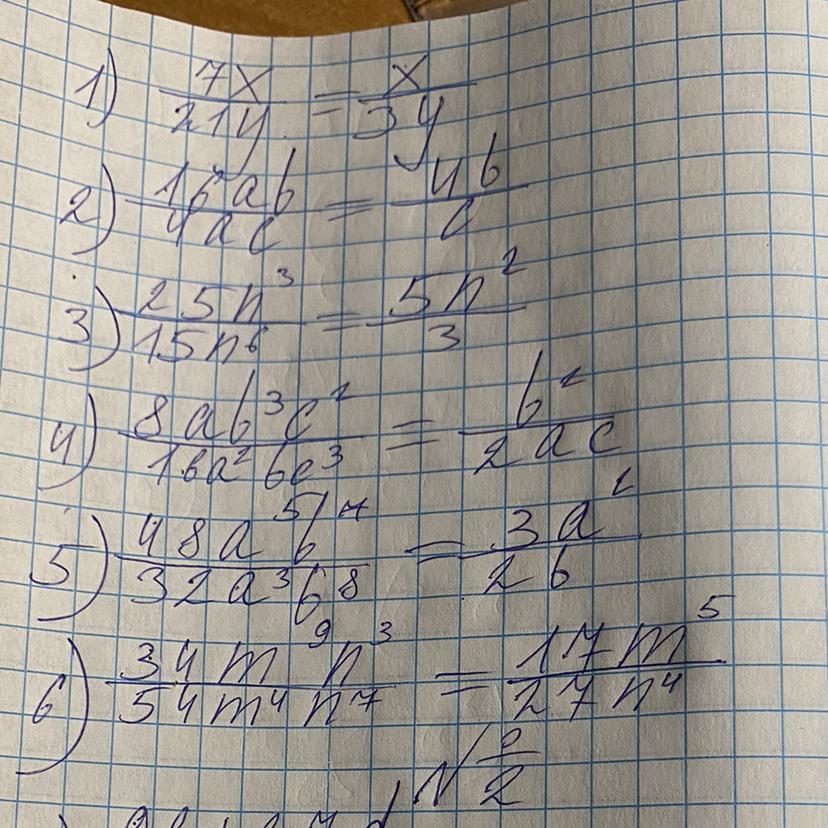 1) 7x/21y = x/3y
2) 16ab/4ac = 4b/c
3) 25n³/15n⁶ = 5n²/3
4) 8ab³c²/16a²bc³ = b²/2ac
5) 48a⁵b⁷/32a³b⁸ = 3a²/2b
6) 34m⁹n³/54m⁴n⁷ = 17m⁵/27n⁴